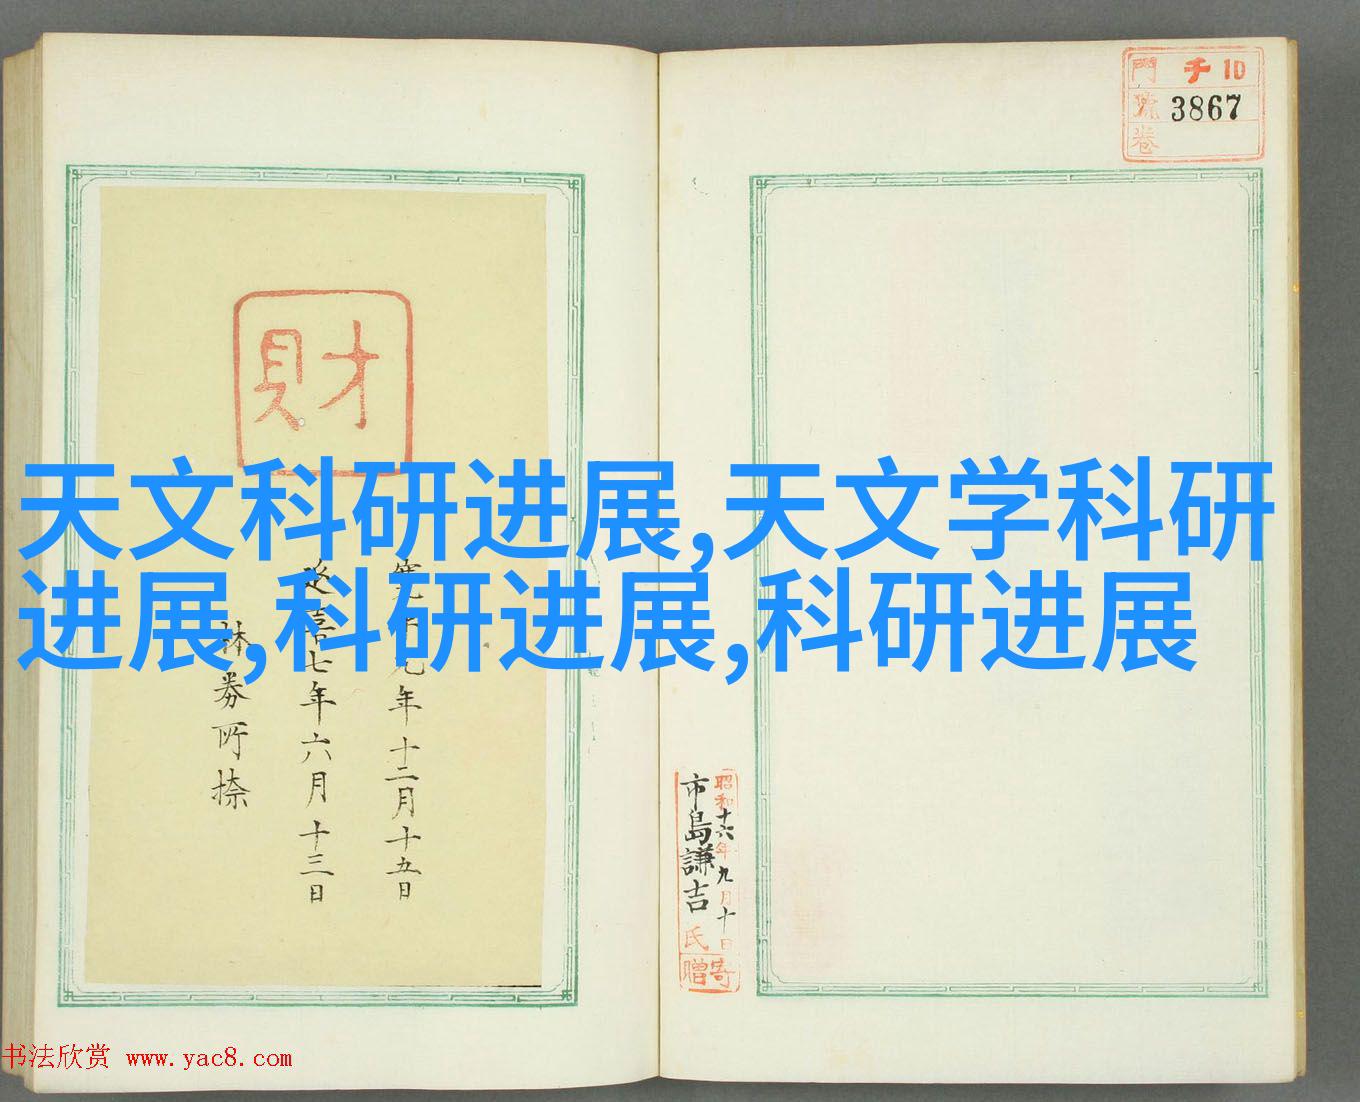 門 千10
號 3867
卷
財
天文科研进展,天文学科研
进展,科研进展,科研进展
元年十二月十五日
七年六月十三日
市島謙吉氏
寄贈
昭和十六年九月十日
书法欣赏 www.yac8.com